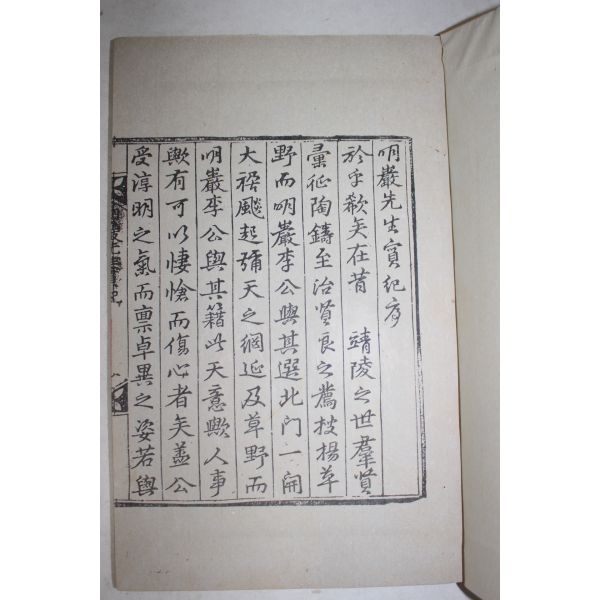 明巖先生實紀序
於乎欷矣在昔 靖陵之世羣賢
彙征陶鑄至治賢良之薦拔揚草
野而明巖李公與其選北門一開
大禍飈起彌天之網延及草野而
明巖李公與其籍此天意歟人事
歟有可以悽愴而傷心者矣蓋公
受淳明之氣而禀卓異之姿若與